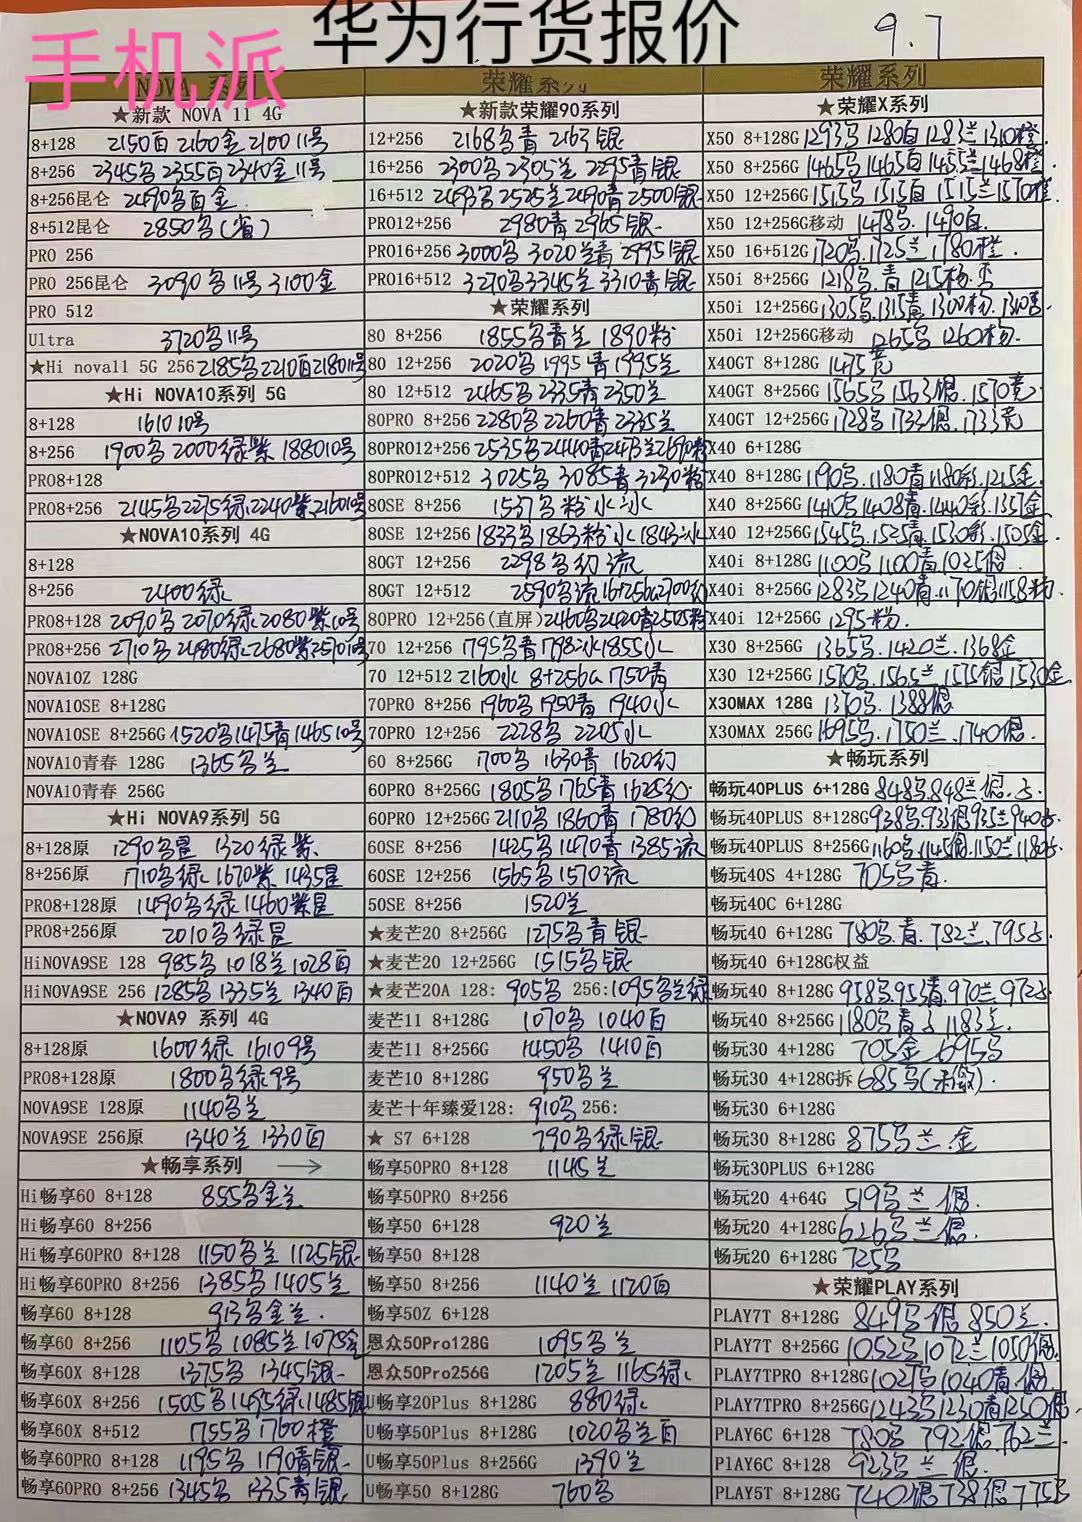 华为行货报价
9.7
手机派
NOVA 系列
★新款 NOVA 11 4G
8+128 2150白 2160金 2100 11号
8+256 2345名 2355白 2340金 11号
8+256昆仑 2490名白金
8+512昆仑 2850名(省)
PRO 256
PRO 256昆仑 3090名 11号 3100金
PRO 512
Ultra 3720名 11号
★Hi nova11 5G 256 2185名 2210白 2180 11号
★Hi NOVA10系列 5G
8+128 1610 10号
8+256 1900名 2000绿紫 1880 10号
PRO8+128
PRO8+256 2145名 2275绿 2240紫 2160 10号
★NOVA10系列 4G
8+128
8+256 2400绿
PRO8+128 2090名 2070绿 2080紫 10号
PRO8+256 2710名 2480绿 2680紫 2570 10号
NOVA10Z 128G
NOVA10SE 8+128G
NOVA10SE 8+256G 1520名 1475青 1465 10号
NOVA10青春 128G 1365名兰
NOVA10青春 256G
★Hi NOVA9系列 5G
8+128原 1290名星 1320绿紫
8+256原 1710名绿 1670紫 1435星
PRO8+128原 1490名绿 1460紫星
PRO8+256原 2010名绿星
HiNOVA9SE 128 985名 1018兰 1028白
HiNOVA9SE 256 1285名 1335兰 1340白
★NOVA9 系列 4G
8+128原 1600绿 1610 9号
PRO8+128原 1800名绿 9号
NOVA9SE 128原 1140名兰
NOVA9SE 256原 1340兰 1330白
★畅享系列 →
Hi畅享60 8+128 855名金兰
Hi畅享60 8+256
Hi畅享60PRO 8+128 1150名兰 1125银
Hi畅享60PRO 8+256 1385名 1405兰
畅享60 8+128 913名金兰.
畅享60 8+256 1105名 1085兰 1075金
畅享60X 8+128 1375名 1345银
畅享60X 8+256 1505名 1495绿 1485银
畅享60X 8+512 1755名 1760橙
畅享60PRO 8+128 1195名 1190青银
畅享60PRO 8+256 1345名 1335青银
荣耀系列
★新款荣耀90系列
12+256 2168名青 2163银
16+256 2300名 2305兰 2295青银
16+512 2493名 2525兰 2490青 2500银
PRO12+256 2980青 2965银
PRO16+256 3000名 3020兰青 2995银
PRO16+512 3270名 3345兰 3310青银
★荣耀系列
80 8+256 1855名青兰 1890粉
80 12+256 2020名 1995青 1995兰
80 12+512 2465名 2335青 2350兰
80PRO 8+256 2280名 2260青 2335兰
80PRO12+256 2535名 2440青 2473兰 2690粉
80PRO12+512 3025名 3085青 3230粉
80SE 8+256 1537名粉水冰
80SE 12+256 1833名 1863粉水 1843冰
80GT 12+256 2298名幻流
80GT 12+512 2590名流 16+256G 2700幻
80PRO 12+256(直屏) 2460名 2420青 2505粉
70 12+256 1795名青 1798冰 1855水
70 12+512 2160水 8+256G 1750青
70PRO 8+256 1960名 1950青 1940水
70PRO 12+256 2228名 2205水
60 8+256G 1700名 1630青 1620幻
60PRO 8+256G 1805名 1765青 1625幻
60PRO 12+256G 2110名 1860青 1780幻
60SE 8+256 1425名 1470青 1385流
60SE 12+256 1565名 1570流
50SE 8+256 1520兰
★麦芒20 8+256G 1275名青银
★麦芒20 12+256G 1515名银
★麦芒20A 128: 905名 256: 1095名兰绿
麦芒11 8+128G 1070名 1040白
麦芒11 8+256G 1450名 1410白
麦芒10 8+128G 950名兰
麦芒十年臻爱128: 910名 256:
★ S7 6+128 790名绿银
畅享50PRO 8+128 1145兰
畅享50PRO 8+256
畅享50 6+128 920兰
畅享50 8+128
畅享50 8+256 1140兰 1120白
畅享50Z 6+128
恩众50Pro128G 1095名兰
恩众50Pro256G 1205兰 1165绿
U畅享20Plus 8+128G 880绿
U畅享50Plus 8+128G 1020名兰白
U畅享50Plus 8+256G 1390兰
U畅享50 8+128G 760名
荣耀系列
★荣耀X系列
X50 8+128G 1293名 1280白 1283兰 1310橙
X50 8+256G 1465名 1465白 1455兰 1468橙
X50 12+256G 1515名 1515白 1515兰 1570橙
X50 12+256G移动 1478名. 1490白.
X50 16+512G 1720名. 1725兰 1780橙.
X50i 8+256G 1218名.青 1215粉.
X50i 12+256G 1305名. 1315青. 1300粉.
X50i 12+256G移动 1265名 1260粉.
X40GT 8+128G 1475竞
X40GT 8+256G 1565名 1563银. 1570竞.
X40GT 12+256G 1728名 1733银. 1733竞
X40 6+128G
X40 8+128G 1190名. 1180青 1180彩. 1215金.
X40 8+256G 1410名 1408青. 1440彩. 1351金.
X40 12+256G 1545名. 1525青. 1530彩. 1505金.
X40i 8+128G 1100名 1100青 1025银.
X40i 8+256G 1283名 1240青. 1170银 1158粉.
X40i 12+256G 1295粉.
X30 8+256G 1365名. 1420兰. 1368金
X30 12+256G 1570名. 1565兰 1575银 1530金
X30MAX 128G 1370名. 1388银
X30MAX 256G 1695名. 1750兰. 1740银.
★畅玩系列
畅玩40PLUS 6+128G 848名.848兰.银.
畅玩40PLUS 8+128G 938名.933银 935兰 940
畅玩40PLUS 8+256G 1160名. 1145银. 1150兰. 1180
畅玩40S 4+128G 705名青.
畅玩40C 6+128G
畅玩40 6+128G 780名.青. 782兰. 795
畅玩40 6+128G权益
畅玩40 8+128G 958名.953青.970兰.972
畅玩40 8+256G 1180名青 1183兰.
畅玩30 4+128G 705金 695名
畅玩30 4+128G拆 685名(未激).
畅玩30 6+128G
畅玩30 8+128G 875名兰.金
畅玩30PLUS 6+128G
畅玩20 4+64G 519名兰银.
畅玩20 4+128G 626名兰银.
畅玩20 6+128G 725名
★荣耀PLAY系列
PLAY7T 8+128G 849名银 850兰.
PLAY7T 8+256G 1052名 1072兰 1050银.
PLAY7TPRO 8+128G 1021名 1040青银.
PLAY7TPRO 8+256G 1243名 1230青 1250银
PLAY6C 6+128 780名 792银.762兰
PlAY6C 8+128 923名兰银.
PLAY5T 8+128G 740银 738银 775名